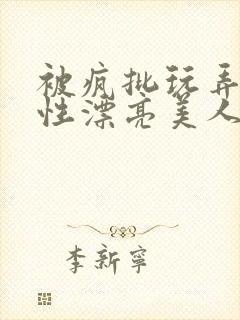 被疯批玩弄
性漂亮美人
李新宁